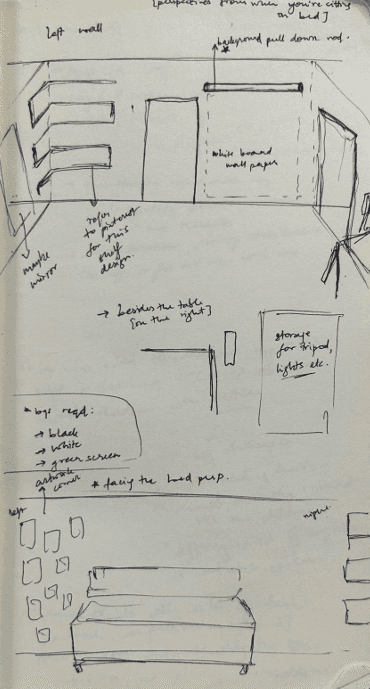 [perspectives from when you're sitting
on bed]
left wall
background pull down rod.
*
white board
wall paper
refer
to pinterest
for this
shelf
design.
maybe
mirror
→ besides the table
[on the right]
storage
for tripod,
lights etc.
* bgs reqd:
→ black
→ white
→ green screen
artwork
corner
* facing the bed persp.
left
right